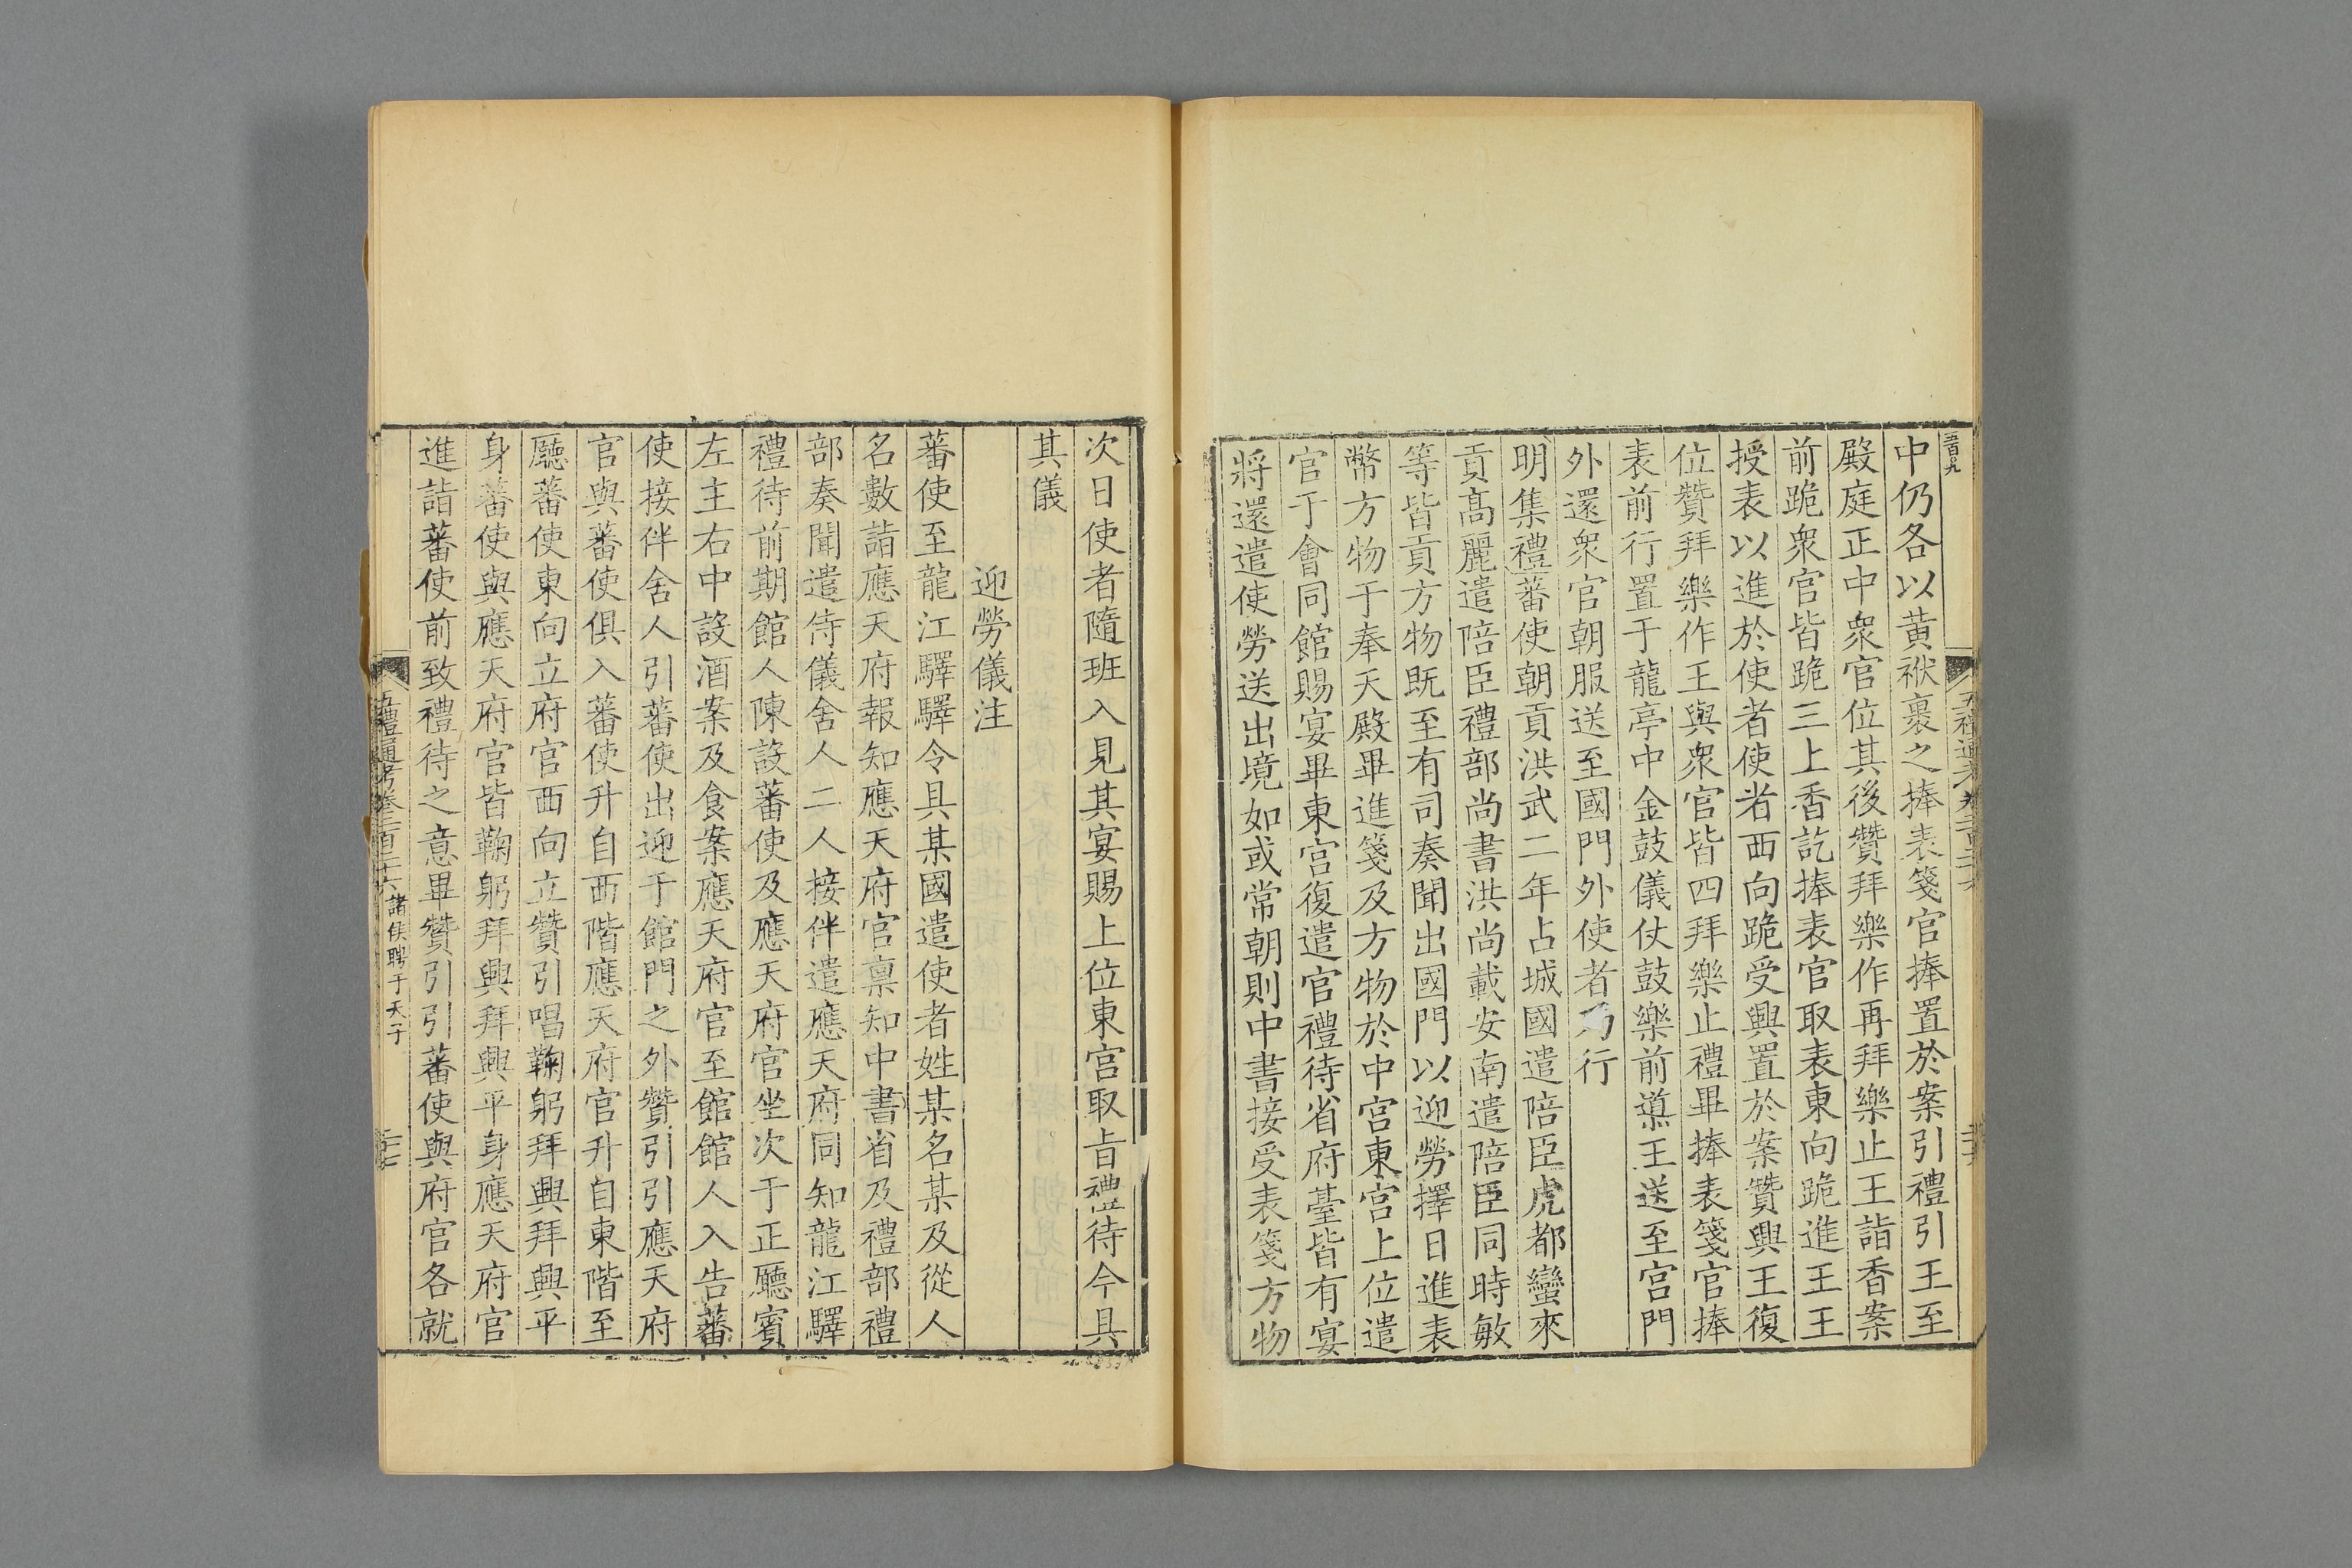 中仍各以黄袱裹之捧表箋官捧置於案引禮引王至
殿庭正中衆官位其後贊拜樂作再拜樂止王詣香案
前跪衆官皆跪三上香訖捧表官取表東向跪進王王
授表以進於使者使者西向跪受興置於案贊興王復
位贊拜樂作王與衆官皆四拜樂止禮畢捧表箋官捧
表前行置于龍亭中金鼓儀仗鼓樂前導王送至宫門
外還衆官朝服送至國門外使者乃行
明集禮蕃使朝貢洪武二年占城國遣陪臣虎都蠻來
貢髙麗遣陪臣禮部尚書洪尚載安南遣陪臣同時敏
等皆貢方物既至有司奏聞出國門以迎勞擇日進表
幣方物于奉天殿畢進箋及方物於中宫東宫上位遣
官于會同館賜宴畢東宫復遣官禮待省府臺皆有宴
將還遣使勞送出境如或常朝則中書接受表箋方物
次日使者隨班入見其宴賜上位東宫取旨禮待今具
其儀
迎勞儀注
蕃使至龍江驛驛令具某國遣使者姓某名某及從人
名數詣應天府報知應天府官禀知中書省及禮部禮
部奏聞遣侍儀舍人二人接伴遣應天府同知龍江驛
禮待前期館人陳設蕃使及應天府官坐次于正廳賓
左主右中設酒案及食案應天府官至館館人入告蕃
使接伴舍人引蕃使出迎于館門之外贊引引應天府
官與蕃使俱入蕃使升自西階應天府官升自東階至
廳蕃使東向立府官西向立贊引唱鞠躬拜興拜興平
身蕃使與應天府官皆鞠躬拜興拜興平身應天府官
進詣蕃使前致禮待之意畢贊引引蕃使與府官各就
五禮通考卷二百二十六 諸侯聘于天子